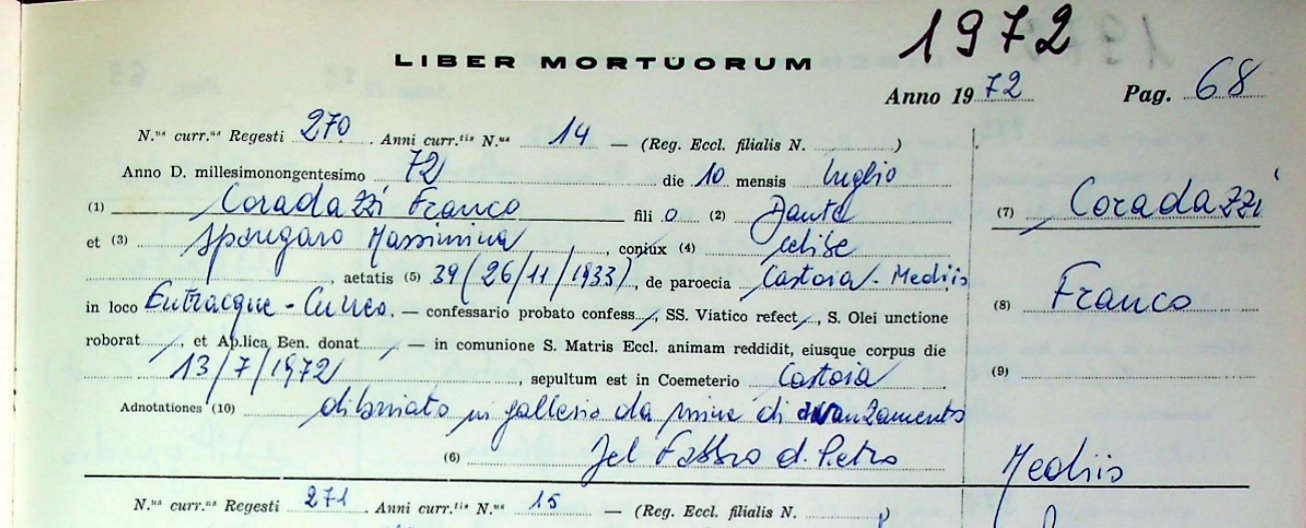 1972
LIBER MORTUORUM
Anno 19 72 Pag. 68
N.us curr.us Regesti 270 Anni curr.tis N.us 14 — (Reg. Eccl. filialis N. )
Anno D. millesimonongentesimo 72 die 10 mensis luglio
(1) Coradazzi Franco fili o (2) Dante (7) Coradazzi
et (3) Spangaro Massimina, coniux (4) celibe
aetatis (5) 39 (26/11/1933), de paroecia Castoia - Mediis
in loco Entracque - Cuneo. — confessario probato confess /, SS. Viatico refect /, S. Olei unctione (8) Franco
roborat /, et Ap.lica Ben. donat / — in comunione S. Matris Eccl. animam reddidit, eiusque corpus die
13/7/1972, sepultum est in Coemeterio Castoia (9)
Adnotationes (10) dilaniato in galleria da mine di avanzamento
(6) Del Fabbro d. Pietro Mediis
N.us curr.us Regesti 271 Anni curr.tis N.us 15 — (Reg. Eccl. filialis N. )